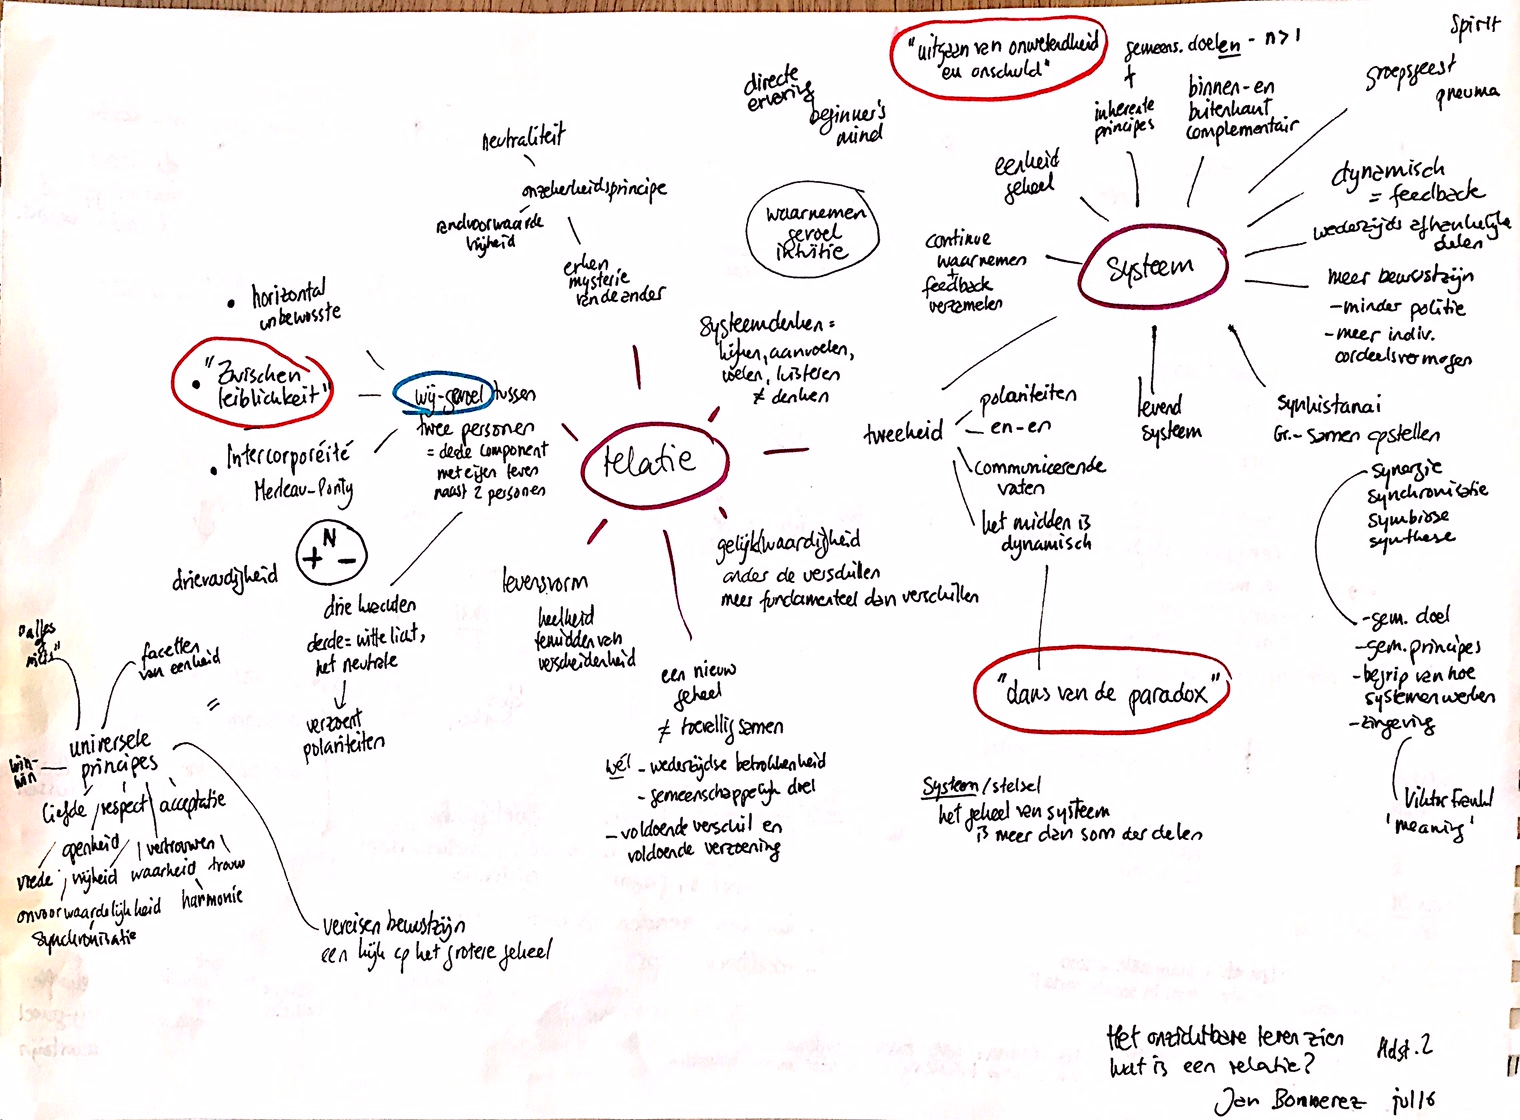 Spirit
groepsgeest
pneuma
"uitgaan van onwetendheid
en onschuld"
gemeens. doelen - n>1
+
inherente
principes
binnen- en
buitenkant
complementair
directe
ervaring
beginner's
mind
eenheid
geheel
dynamisch
= feedback
wederzijds afhankelijke
delen
neutraliteit
onzekerheidsprincipe
randvoorwaarde
vrijheid
erken
mysterie
van de ander
waarnemen
gevoel
intuïtie
continue
waarnemen
+
feedback
verzamelen
systeem
meer bewustzijn
- minder politie
- meer indiv.
oordeelsvermogen
• horizontal
unbewusste
• "Zwischen
leiblichkeit"
• Intercorporéité
Merleau-Ponty
wij-gevoel tussen
twee personen
= derde component
met eigen leven
naast 2 personen
systeemdenken =
kijken, aanvoelen,
voelen, luisteren
≠ denken
relatie
tweeheid
polariteiten
en-en
communicerende
vaten
het midden is
dynamisch
levend
systeem
synhistanai
Gr. - samen opstellen
synergie
synchronisatie
symbiose
synthese
gelijk(waardig)heid
onder de verschillen
meer fundamenteel dan verschillen
levensvorm
heelheid
temidden van
verscheidenheid
drievoudigheid
N
+ -
drie krachten
derde = witte licht,
het neutrale
verzoent
polariteiten
een nieuw
geheel
≠ toevallig samen
wél - wederzijdse betrokkenheid
- gemeenschappelijk doel
- voldoende verschil en
voldoende verzoening
"dans van de paradox"
- gem. doel
- gem. principes
- begrip van hoe
systemen werken
- zingeving
Viktor Frankl
'meaning'
System/stelsel
het geheel van systeem
is meer dan som der delen
"alles
niets"
facetten
van eenheid
=
universele
principes
win-
win
liefde respect acceptatie
openheid vertrouwen
vrede vrijheid waarheid trouw
onvoorwaardelijkheid harmonie
synchronisatie
vereisen bewustzijn
een kijk op het grotere geheel
Het onzichtbare leren zien
wat is een relatie?
Hdst. 2
Jan Bommerez jul 16